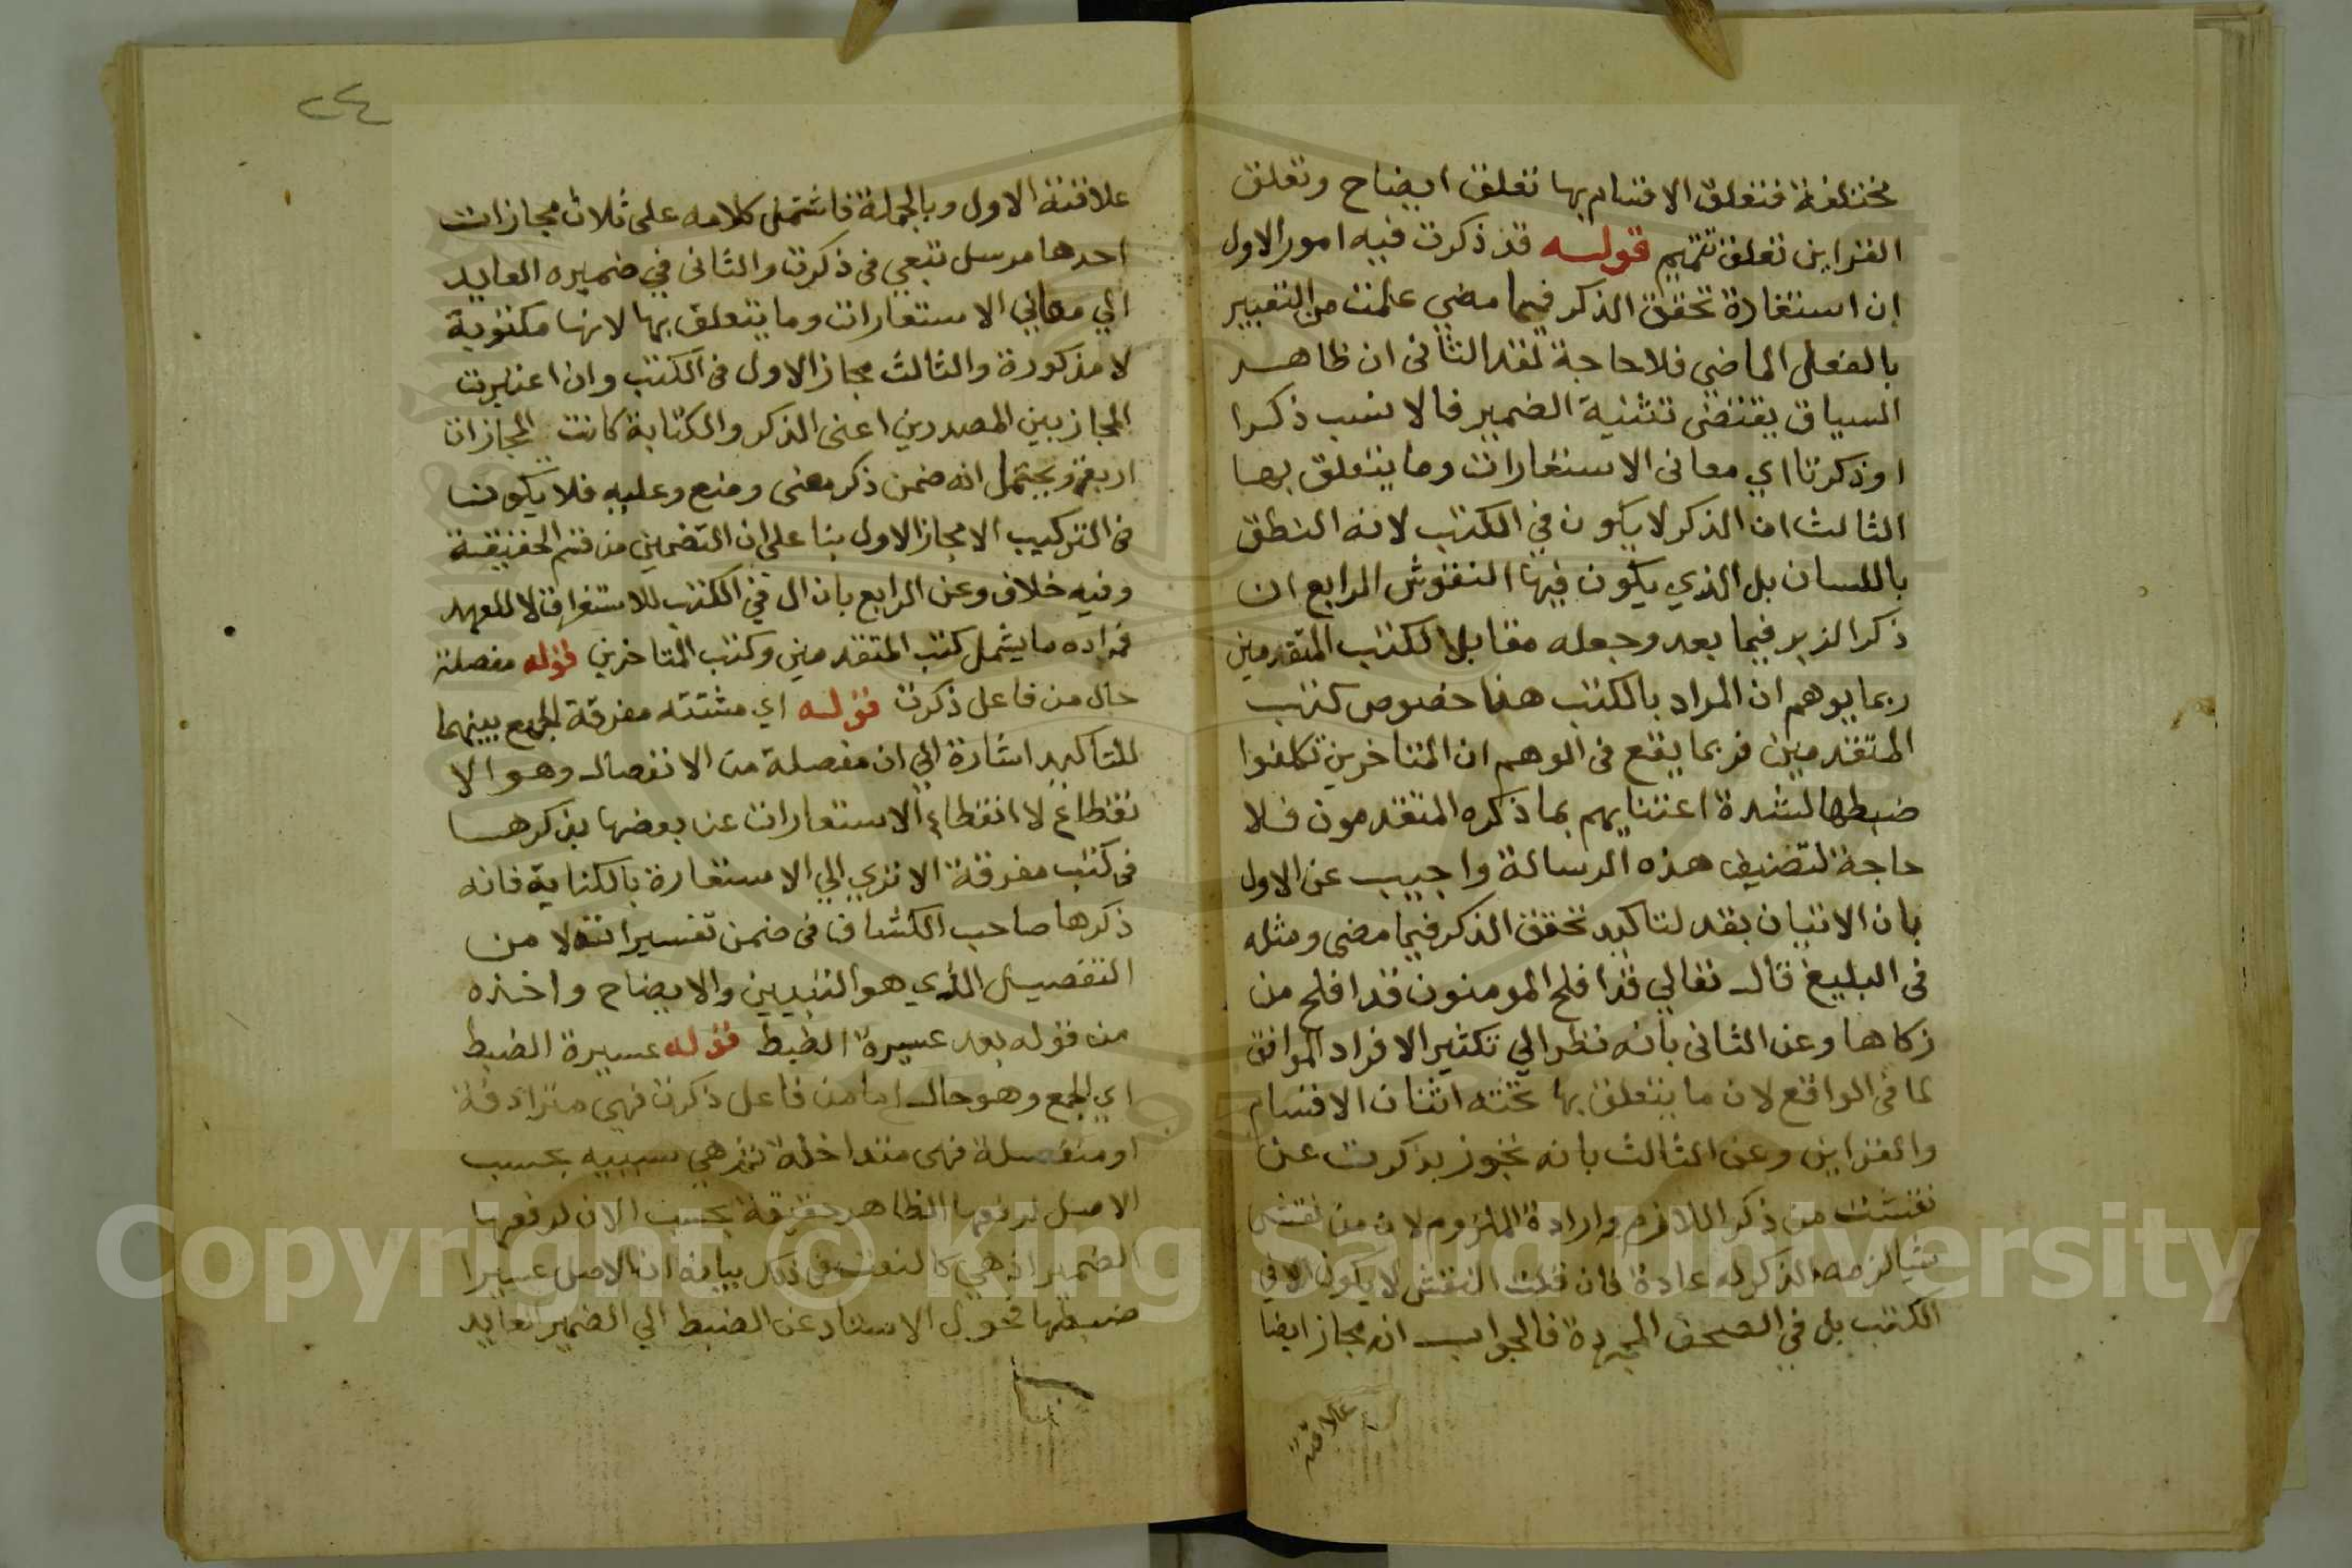 مختلفة فتعلق الاقسام بها تعلق ايضاح وتعلق
القراين تعلق تتميم قوله قد ذكرت فيه امور الاول
ان استفادة تحقق الذكر فيما مضي علمت من التعبير
بالفعل الماضي فلا حاجة لقد الثاني ان ظاهر
السياق يقتضى تثنية الضمير فالانسب ذكرا
او ذكرتا اي معانى الاستعارات وما يتعلق بها
الثالث ان الذكر لا يكون في الكتب لانه النطق
باللسان بل الذي يكون فيها النقوش الرابع ان
ذكر الزبر فيما بعد وجعله مقابلا لكتب المتقدمين
ربما يوهم ان المراد بالكتب هنا خصوص كتب
المتقدمين فربما يقع فى الوهم ان المتاخرين تكلفوا
ضبطها لشدة اعتنايهم بما ذكره المتقدمون فلا
حاجة لتصنيف هذه الرسالة واجيب عن الاول
بان الاتيان بقد لتاكيد تحقق الذكر فيما مضى ومثله
فى البليغ قال تعالي قد افلح المومنون قد افلح من
زكاها وعن الثانى بانه نظر الي تكثير الافراد الموافق
لما فى الواقع لان ما يتعلق بها تحته اثنان الاقسام
والقراين وعن الثالث بانه تجوز بذكرت عن
نقشت من ذكر اللازم وارادة الملزوم لان من نقش
شيا لزمه الذكر له عادة فان قلت النقش لا يكون الا في
الكتب بل في الصحف المجردة فالجواب انه مجاز ايضا
علاقته
٢٤
علاقته الاول وبالجملة فاشتمل كلامه على ثلاث مجازات
احدها مرسل تبعي فى ذكرت والثانى في ضميره العايد
الي معاني الاستعارات وما يتعلق بها لانها مكتوبة
لا مذكورة والثالث مجاز الاول فى الكتب وان اعتبرت
المجاز بين المصدرين اعنى الذكر والكتابة كانت المجازات
اربعة ويحتمل انه ضمن ذكر معنى وضع وعليه فلا يكون
فى التركيب الا مجاز الاول بنا على ان التضمين من قسم الحقيقة
وفيه خلاف وعن الرابع بان ال في الكتب للاستغراق لا للعهد
فمراده ما يشمل كتب المتقدمين وكتب المتاخرين قوله مفصلة
حال من فاعل ذكرت قوله اي مشتته مفرقة الجمع بينهما
للتاكيد اشارة الي ان مفصلة من الانفصال وهو الا
نقطاع لا انقطاع الاستعارات عن بعضها بذكرها
فى كتب مفرقة الا ترى الي الاستعارة بالكناية فانه
ذكرها صاحب الكشاف فى ضمن تفسيراته لا من
التفصيل الذي هو التبيين والايضاح واخذه
من قوله بعد عسيرة الضبط قوله عسيرة الضبط
اي الجمع وهو حال اما من فاعل ذكرت فهى مترادفة
او منفصلة فهى متداخلة ثم هي سببيه بحسب
الاصل لرفعها الظاهر حقيقة بحسب الان لرفعها
الضمير اذ هي كالنعت فى ذلك بيانه ان الاصل عسيرا
ضبطها فحول الاسناد عن الضبط الي الضمير العايد
Copyright © King Saud University